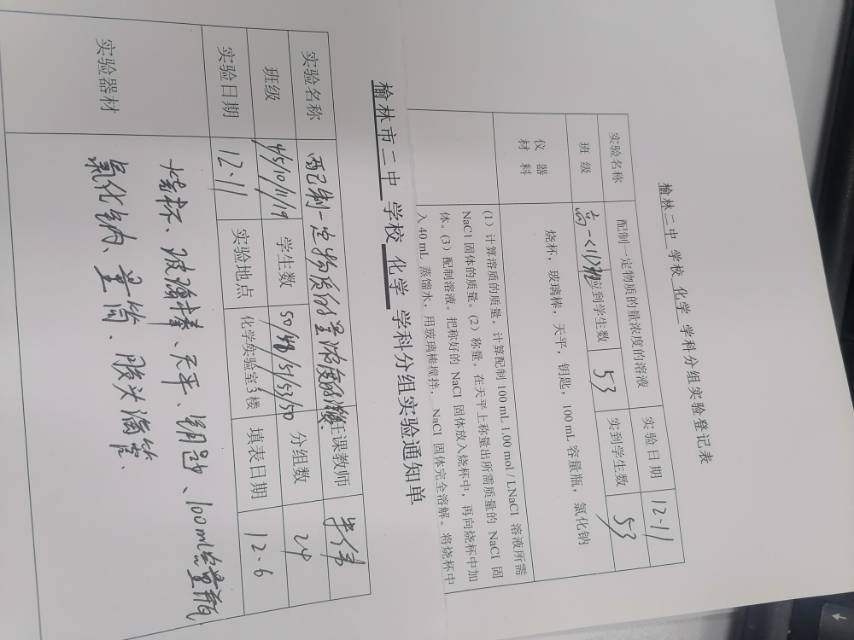 榆林二中 学校 化学 学科分组实验登记表
实验名称 配制一定物质的量浓度的溶液 实验日期 12.11
班级 高一<11>班 应到学生数 53 实到学生数 53
仪器材料 烧杯，玻璃棒，天平，钥匙，100 mL 容量瓶，氯化钠
(1) 计算溶质的质量，计算配制 100 mL 1.00 mol / LNaCl 溶液所需
NaCl 固体的质量。(2) 称量，在天平上称量出所需质量的 NaCl 固
体。(3) 配制溶液。把称好的 NaCl 固体放入烧杯中，再向烧杯中加
入 40 mL 蒸馏水，用玻璃棒搅拌， NaCl 固体完全溶解。将烧杯中
榆林市二中 学校 化学 学科分组实验通知单
实验名称 配制一定物质的量浓度的溶液 任课教师
班级 4/5/10/11/19 学生数 50/48/51/53/50 分组数 24
实验日期 12.11 实验地点 化学实验室3楼 填表日期 12.6
实验器材 烧杯、玻璃棒、天平、钥匙、100ml容量瓶
氯化钠、量筒、胶头滴管、